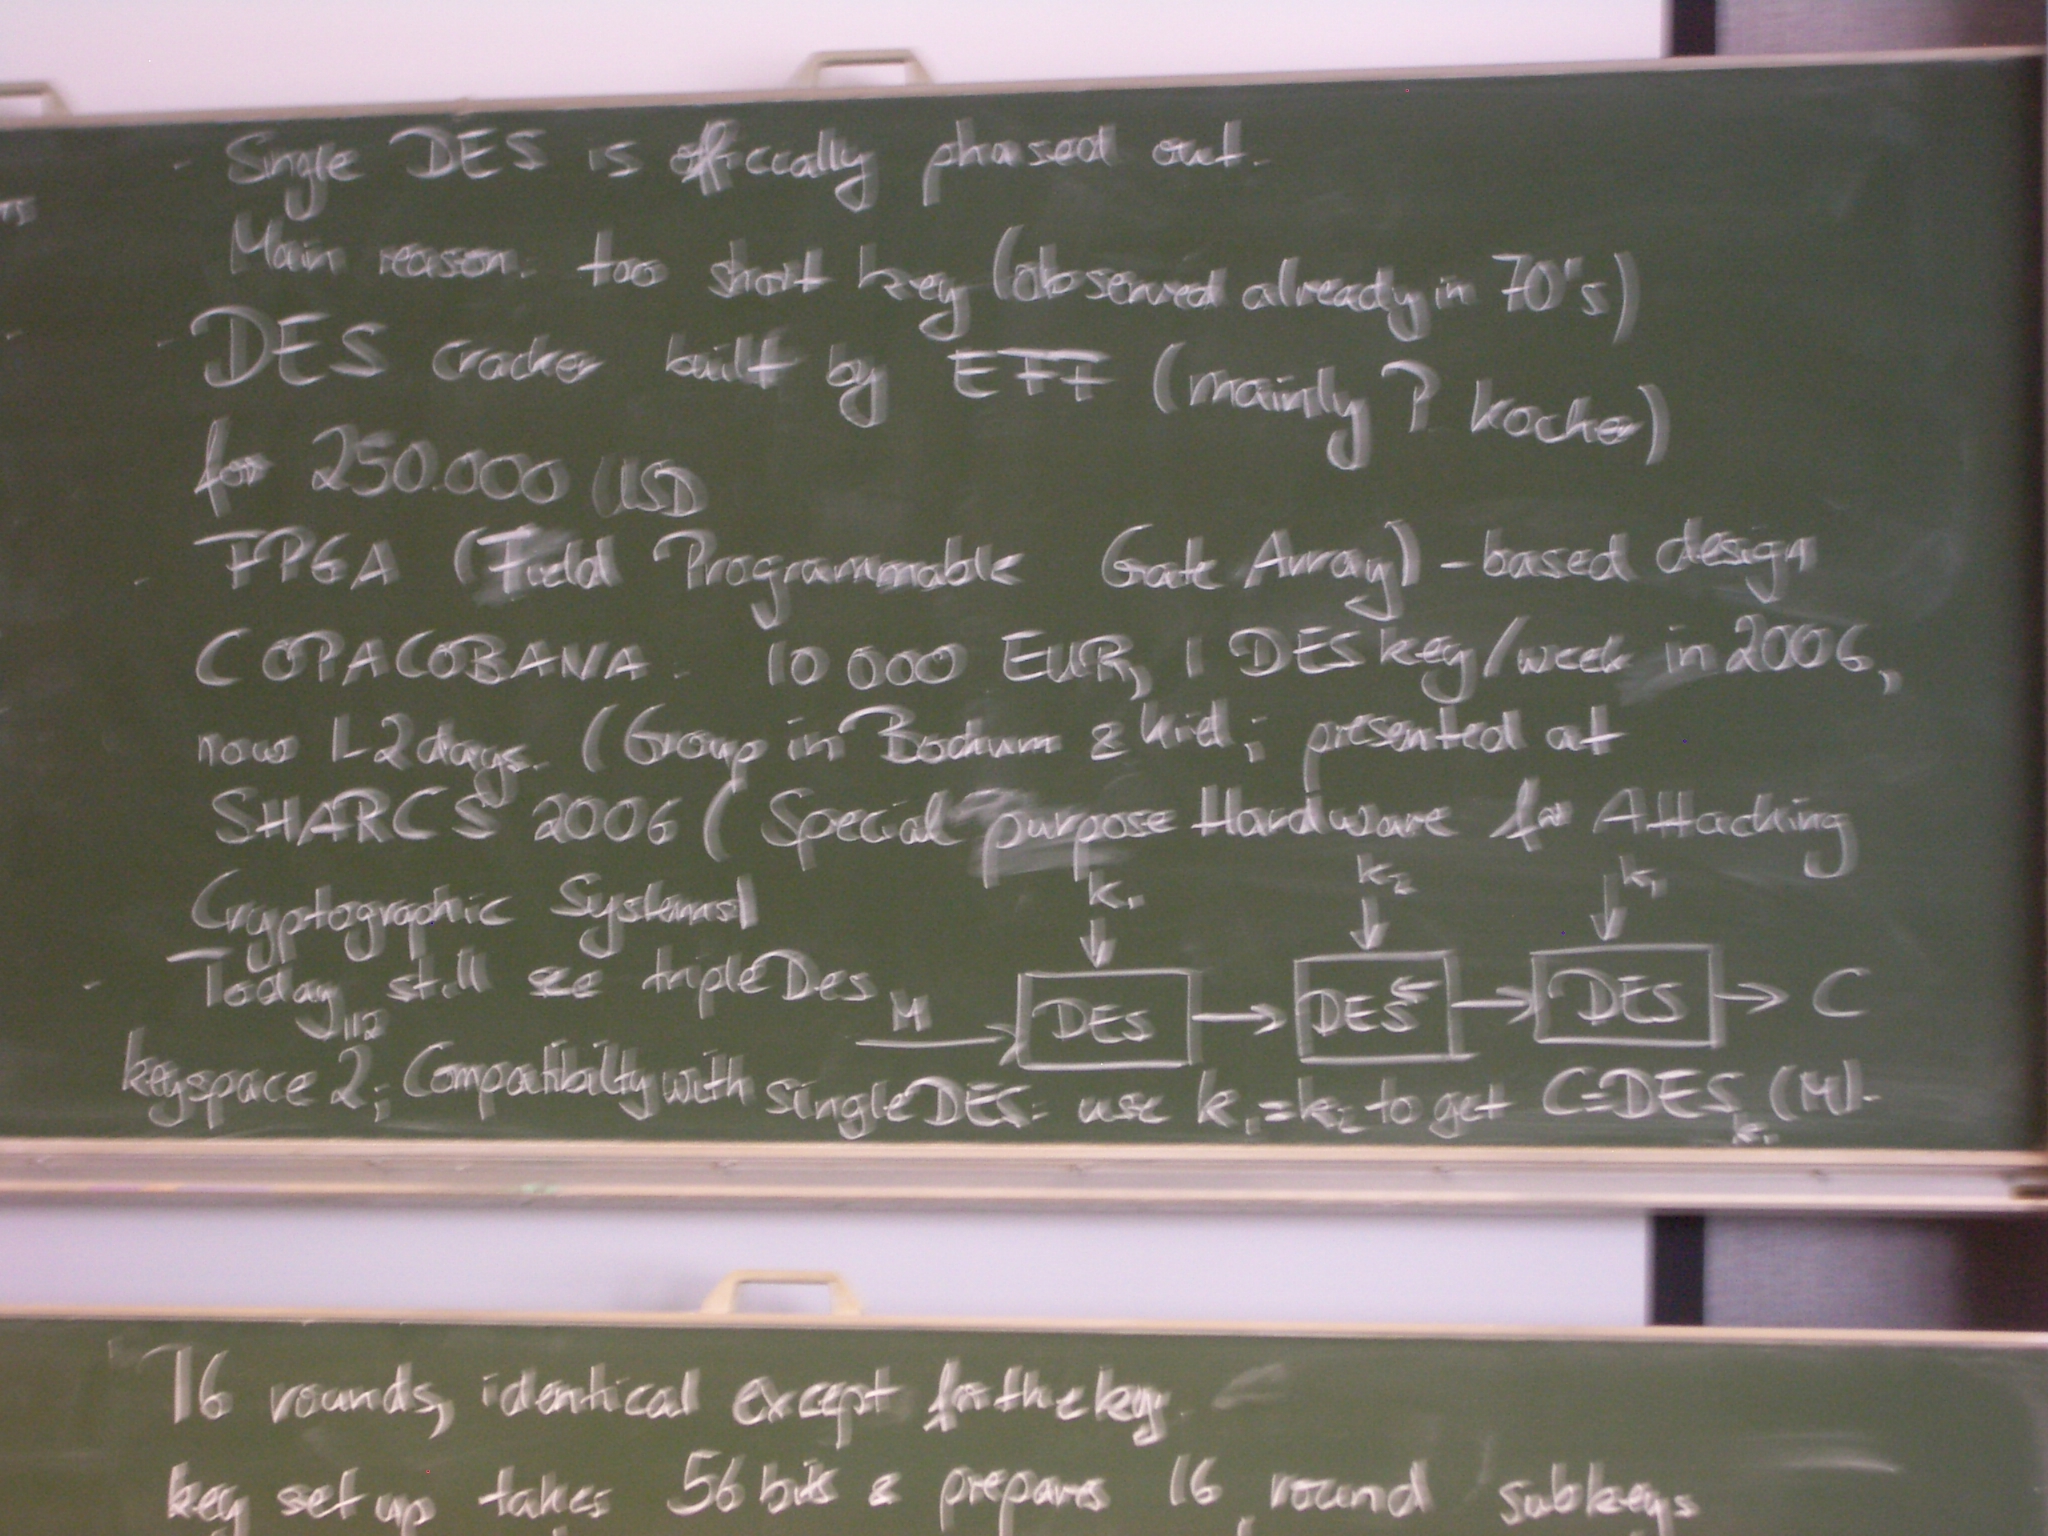 - Single DES is officially phased out.
Main reason: too short key (observed already in 70's)
- DES cracker built by EFF (mainly P Kocher)
for 250.000 USD
- FPGA (Field Programmable Gate Array)-based design
COPACOBANA: 10 000 EUR, 1 DES key/week in 2006,
now 1-2 days. (Group in Bochum & Kiel; presented at
SHARCS 2006 (Special purpose Hardware for Attacking
Cryptographic Systems)
k₁ k₂ k₁
- Today still see triple Des M DES → DES← → DES → C
keyspace 2¹¹²; Compatibilty with single DES: use k₁=k₂ to get C=DES_k₁(M).
16 rounds, identical except for the key.
key set up takes 56 bits & prepares 16 round subkeys